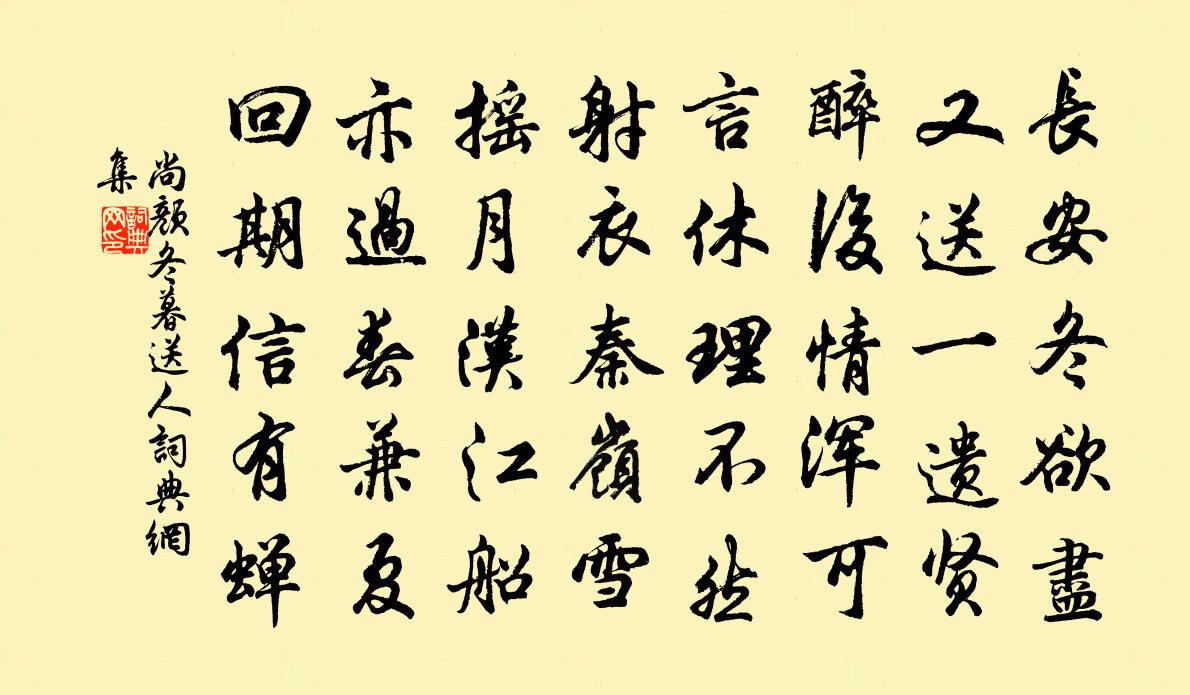 長安冬欲盡
又送一遗贤
醉後情浑可
言休理不然
射衣秦嶺雪
摇月漢江船
亦過春兼夏
回期信有蝉
尚颜冬暮送人詞典網
集
詞典網印